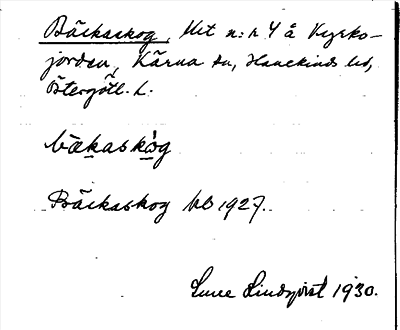 Bäckaskog, Ut n:r 4 å Kyrko-
jorden, Kärna sn, Hanekinds hd,
Östergötl. l.
bäkaskòg
Bäckaskog kb 1927.
Sune Lindqvist 1930.